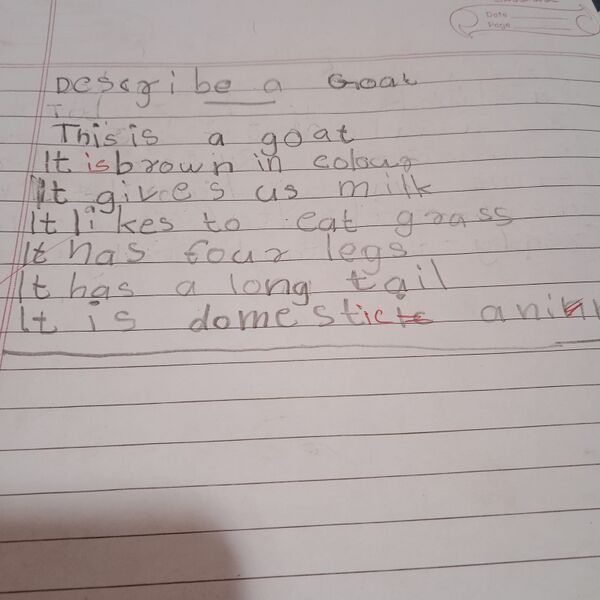 Date
Page
Describe a Goat
This is a goat
It is brown in colour
It gives us milk
It likes to eat grass
It has four legs
It has a long tail
It is domestic